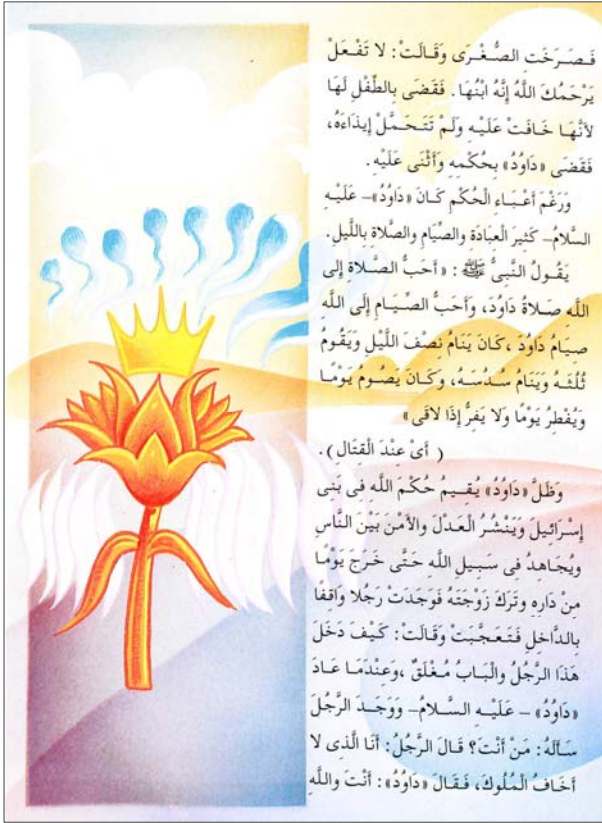 فَصَرَخَت الصُّغْرَى وَقَالَتْ: لا تَفْعَلْ
يَرْحَمُكَ اللَّهُ إِنَّهُ ابْنُهَا. فَقَضَى بِالطِّفْلِ لَهَا
لأَنَّهَا خَافَتْ عَلَيْه وَلَمْ تَتَحَمَّلْ إِيذَاءَهُ،
فَقَضَى «دَاوُدُ» بِحُكْمِه وَأَثْنَى عَلَيْه.
وَرَغْمَ أَعْبَاءِ الْحُكْمِ كَانَ «دَاوُدُ» – عَلَيْه
السَّلامُ – كَثِيرَ الْعِبَادَةِ والصِّيَامِ والصَّلاة بِاللَّيلِ.
يَقُولُ النَّبِىُّ ﷺ: «أَحَبُّ الصَّلاة إِلى
اللَّهِ صَلاةُ دَاوُدَ، وَأَحَبُّ الصِّيَامِ إِلَى اللَّهِ
صِيَامُ دَاوُدَ، كَانَ يَنَامُ نِصْفَ اللَّيْلِ وَيَقُومُ
ثُلُثَهُ وَيَنَامُ سُدُسَهُ، وَكَانَ يَصُومُ يَوْمًا
وَيُفْطِرُ يَوْمًا وَلا يَفِرُّ إِذَا لاقَى»
( أَىْ عِنْدَ الْقِتَالِ ).
وَظَلَّ «دَاوُدُ» يُقِيمُ حُكْمَ اللَّهِ فِى بَنِى
إِسْرَائِيلَ وَيَنْشُرُ الْعَدْلَ والأَمْنَ بَيْنَ النَّاسِ
ويُجَاهِدُ فِى سَبِيلِ اللَّهِ حَتَّى خَرَجَ يَوْمًا
مِنْ دَارِهِ وتَرَكَ زَوْجَتَهُ فَوَجَدَتْ رَجُلا وَاقِفًا
بِالدَّاخِلِ فَتَعَجَّبَتْ وَقَالَتْ: كَيْفَ دَخَلَ
هَذَا الرَّجُلُ والْبَابُ مُغْلَقٌ، وَعِنْدَمَا عَادَ
«دَاوُدُ» – عَلَيْه السَّلامُ – وَوَجَدَ الرَّجُلَ
سَأَلَهُ: مَنْ أَنْتَ؟ قَالَ الرَّجُلُ: أَنَا الَّذِى لا
أَخَافُ الْمُلُوكَ، فَقَالَ «دَاوُدُ»: أَنْتَ واللَّهِ